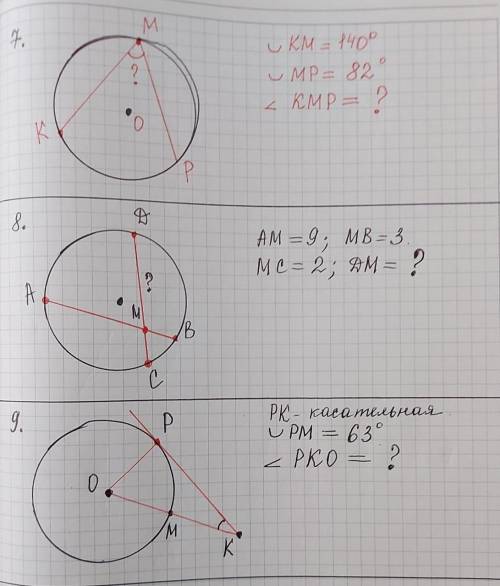 7.
M
?
O
K
P
◡ KM = 140°
◡ MP = 82°
∠ KMP = ?
8.
Д
?
A
M
B
C
AM = 9; MB = 3.
MC = 2; ДM = ?
9.
P
O
M
K
PK - касательная
◡ PM = 63°
∠ PKO = ?